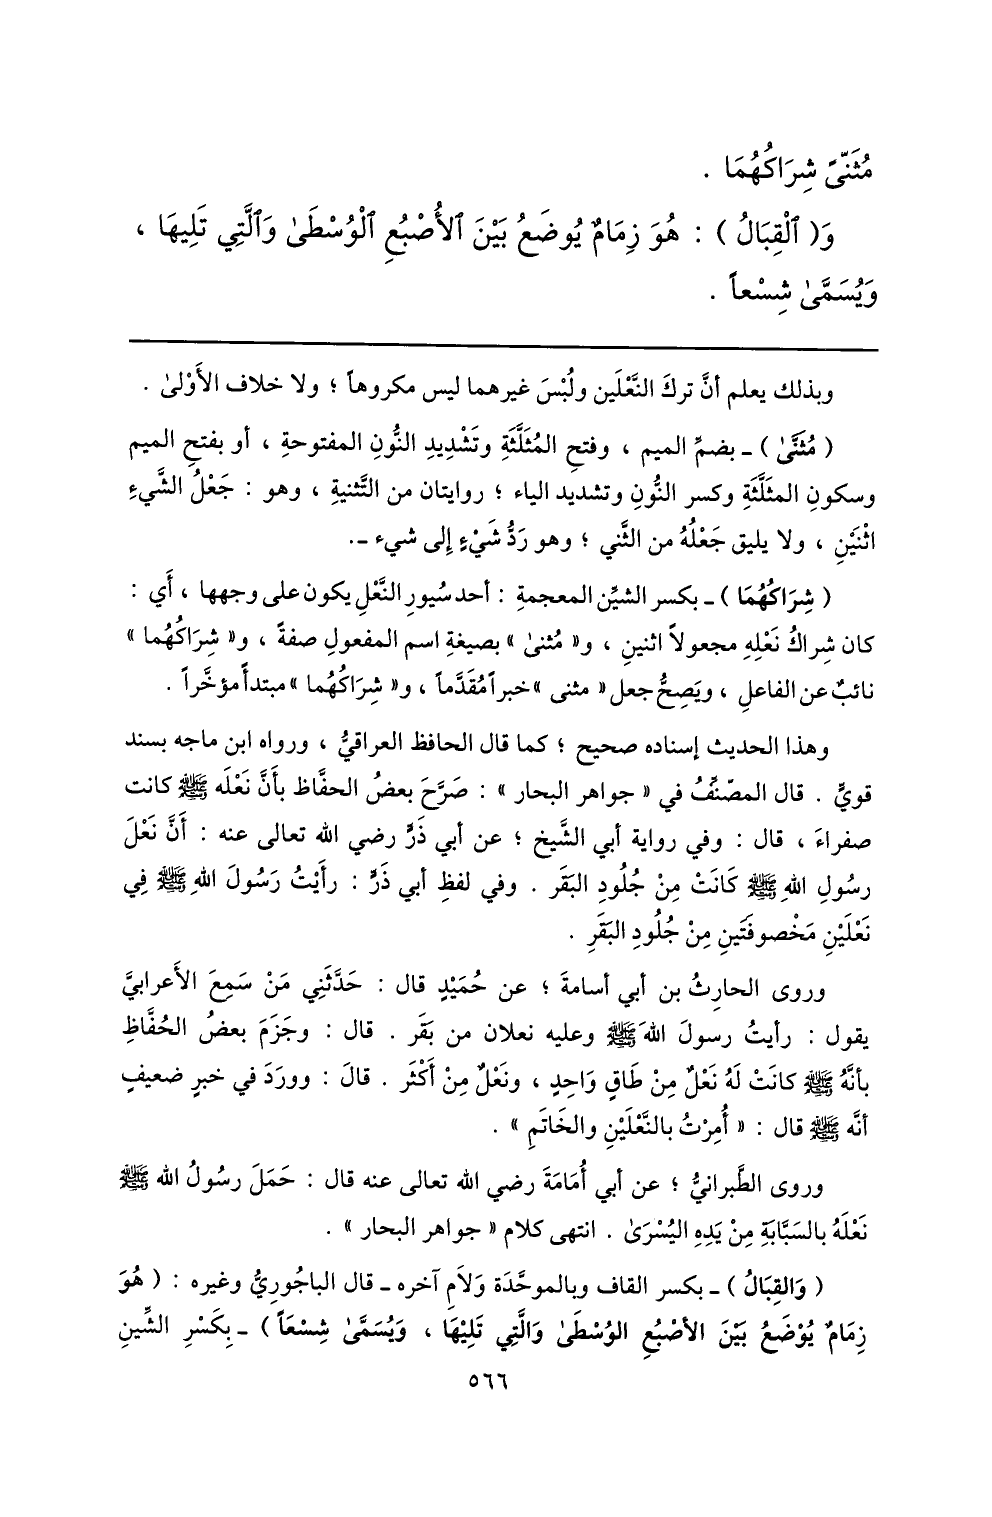 مُثَنّىً شِرَاكُهُمَا .
وَ( ٱلْقِبَالُ ) : هُوَ زِمَامٌ يُوضَعُ بَيْنَ ٱلأُصْبُعِ ٱلْوُسْطَىٰ وَٱلَّتِي تَلِيهَا ،
وَيُسَمَّىٰ شِسْعاً .
وبذلك يعلم أنَّ تركَ النَّعْلَين ولُبْسَ غيرهما ليس مكروهاً ؛ ولا خلاف الأَوْلىٰ .
( مُثَنَّىٰ ) ـ بضمِّ الميم ، وفتحِ المُثَلَّثَةِ وتَشْدِيدِ النُّونِ المفتوحةِ ، أو بفتحِ الميم
وسكونِ المثَلَّثَةِ وكسر النُّونِ وتشديد الياء ؛ روايتان من التَّثنيةِ ، وهو : جَعْلُ الشَّيءِ
اثْنَيْنِ ، ولا يليق جَعْلُهُ من الثَّني ؛ وهو رَدُّ شَيْءٍ إِلى شيء ـ.
( شِرَاكُهُمَا ) ـ بكسر الشيِّن المعجمةِ : أحد سُيورِ النَّعْلِ يكون على وجهها ، أَي :
كان شِراكُ نَعْلِهِ مجعولاً اثنينِ ، و« مُثنىٰ » بصيغةِ اسم المفعولِ صفةً ، و« شِرَاكُهُما »
نائبٌ عن الفاعلِ ، ويَصِحُّ جعل « مثنى » خبراً مُقَدَّماً ، و« شِرَاكُهُما » مبتدأً مؤخَّراً .
وهذا الحديث إسناده صحيح ؛ كما قال الحافظ العراقيُّ ، ورواه ابن ماجه بسند
قويٍّ . قال المصنِّفُ في « جواهر البحار » : صَرَّحَ بعضُ الحفَّاظ بأَنَّ نَعْلَه ﷺ كانت
صفراءَ ، قال : وفي رواية أبي الشَّيخ ؛ عن أبي ذَرٍّ رضي الله تعالى عنه : أَنَّ نَعْلَ
رسُولِ اللهِ ﷺ كَانَتْ مِنْ جُلُودِ البَقَر . وفي لفظِ أبي ذَرٍّ : رأَيْتُ رَسُولَ اللهِ ﷺ فِي
نَعْلَيْنِ مَخْصوفَتَينِ مِنْ جُلُودِ البَقَرِ .
وروى الحارِثُ بن أبي أسامةَ ؛ عن حُمَيْدٍ قال : حَدَّثَنِي مَنْ سَمِعَ الأَعرابيَّ
يقول : رأيتُ رسولَ اللهَ ﷺ وعليه نعلان من بَقَر . قال : وجَزَمَ بعضُ الحُفَّاظِ
بأنَّهُ ﷺ كانَتْ لَهُ نَعْلٌ مِنْ طَاقٍ وَاحِدٍ ، ونَعْلٌ مِنْ أَكْثَر . قالَ : وورَدَ في خبرٍ ضعيفٍ
أنَّه ﷺ قال : « أُمِرْتُ بالنَّعْلَيْنِ والخَاتَمِ » .
وروى الطَّبرانيُّ ؛ عن أبي أُمَامَةَ رضي الله تعالى عنه قال : حَمَلَ رسُولُ الله ﷺ
نَعْلَهُ بالسَبَّابَةِ مِنْ يَدِهِ اليُسْرَىٰ . انتهى كلام « جواهر البحار » .
( وَالقِبَالُ ) ـ بكسر القاف وبالموحَّدَة وَلاَمٍ آخره ـ قال الباجُورِيُّ وغيره : ( هُوَ
زِمَامٌ يُوْضَعُ بَيْنَ الأصْبُعِ الوُسْطَىٰ وَالَّتِي تَلِيْهَا ، وَيُسَمَّىٰ شِسْعَاً ) ـ بِكَسْرِ الشِّينِ
٥٦٦